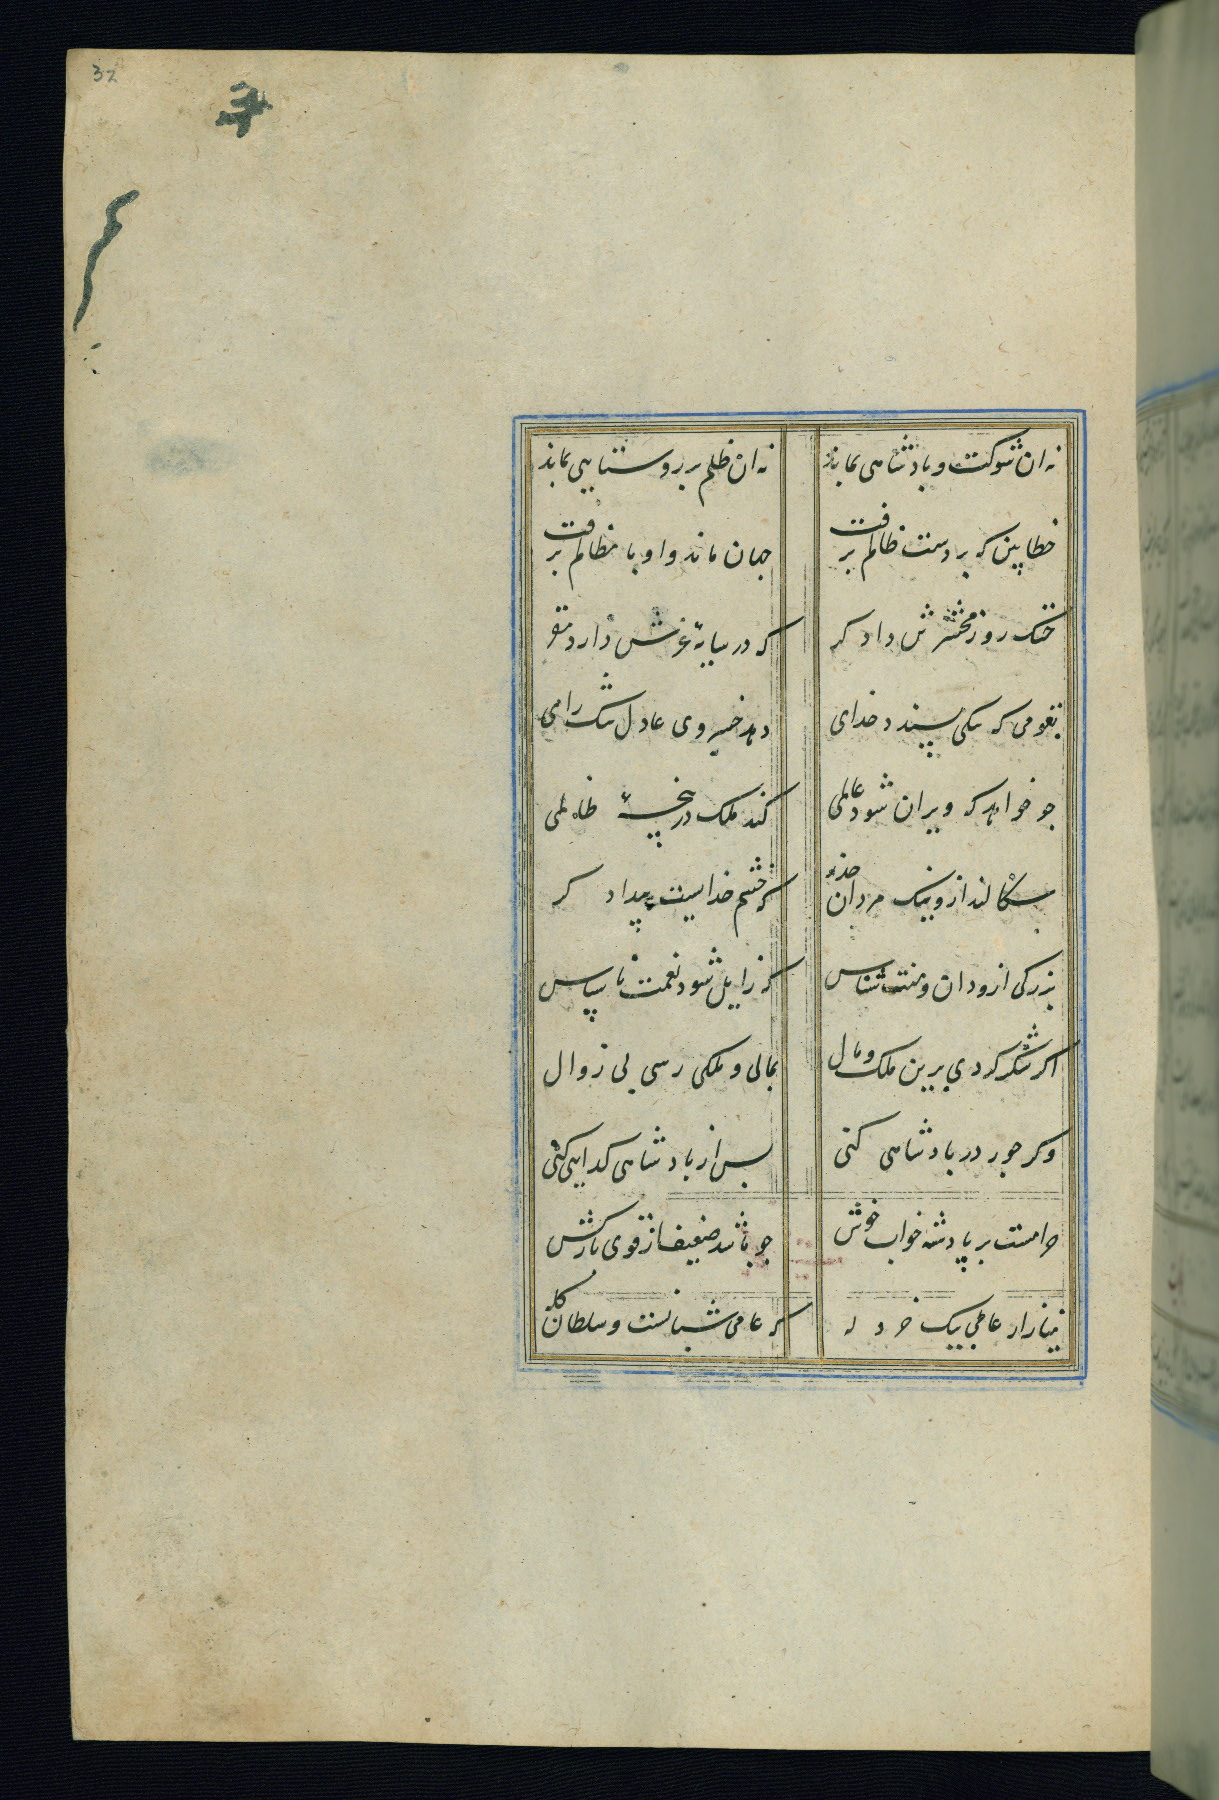 32
نه ان شوکت و بادشاهی بماند نه ان ظلم بر روستایی بماند
خطا بین که بر دست ظالم برفت جهان ماند و او با مظالم برفت
خنک روز محشر تن دادکر که در سایهٔ عرش دارد مقر
بقومی که نیکی پسندد خدای دهد خسروی عادل نیک رای
جو خواهد که ویران شود عالمی کند ملک در پنجهٔ ظالمی
سکالند ازو نیک مردان حذر که خشم خداست بیدادکر
بزرکی ازو دان و منت شناس که زایل شود نعمت ناسپاس
اکر شکر کردی برین ملک و مال بمالی و ملکی رسی بی زوال
وکر جور در بادشاهی کنی بس از بادشاهی کدایی کنی
حرامست بر پادشه خواب خوش جو باشد ضعیف از قوی بارکش
میازار عامی بیک خردله که عامی شبانست و سلطان کله